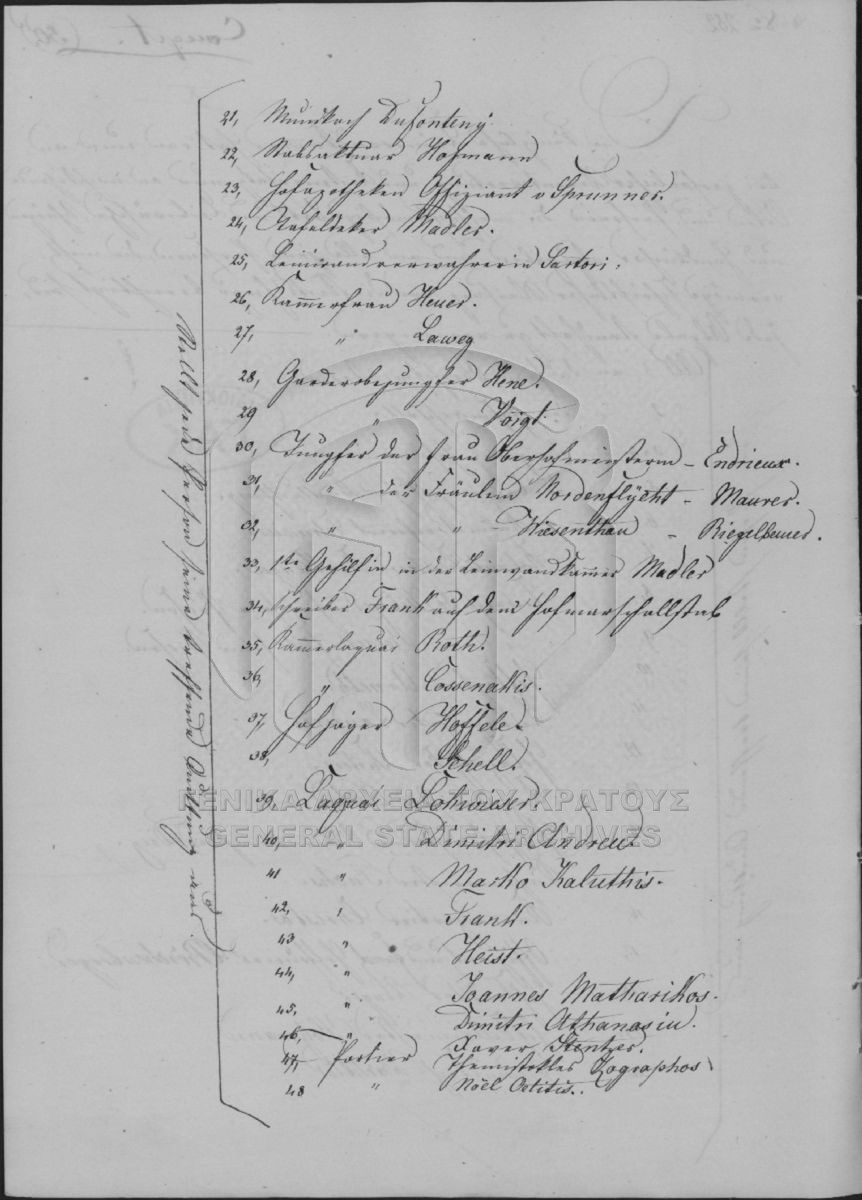 21, Mundkoch Dufonteny
22, Stabsaktuar Hofmann
23, Hofapotheken Offiziant v Sprunner.
24, Tafeldeker Madler.
25, Leinwandverwahrerin Sartori.
26, Kammerfrau Heuer.
27, " Laweg
28, Garderobejungfer Hene.
29 " Voigt.
30, Jungfer der Frau Obersthofmeisterin – Endrieux.
31, " der Fräulein Nordenflÿcht – Maurer.
32, " " Wiesenthau –
33, 1te Gehilfin in der Leinwandkammer Madler
34, Schreiber Frank auf dem Hofmarschallstab
35, Kammerlaquai Roth.
36, " Cossenakis.
37, Hofjäger Höffele.
38, Schell.
39, Laquai
40, " Dimitri Andreu
41 " Marko Kaluthis.
42, " Frank.
43 " Heist.
44, " Joannes Matharikos.
45, " Dimitri Athanasiu.
46, " Xaver Stentzer.
47, Portier Themistokles Zographos
48 " Noël
Stellt jede Person seine treffende Quittung aus.
ΓΕΝΙΚΑ ΑΡΧΕΙΑ ΤΟΥ ΚΡΑΤΟΥΣ
GENERAL STATE ARCHIVES